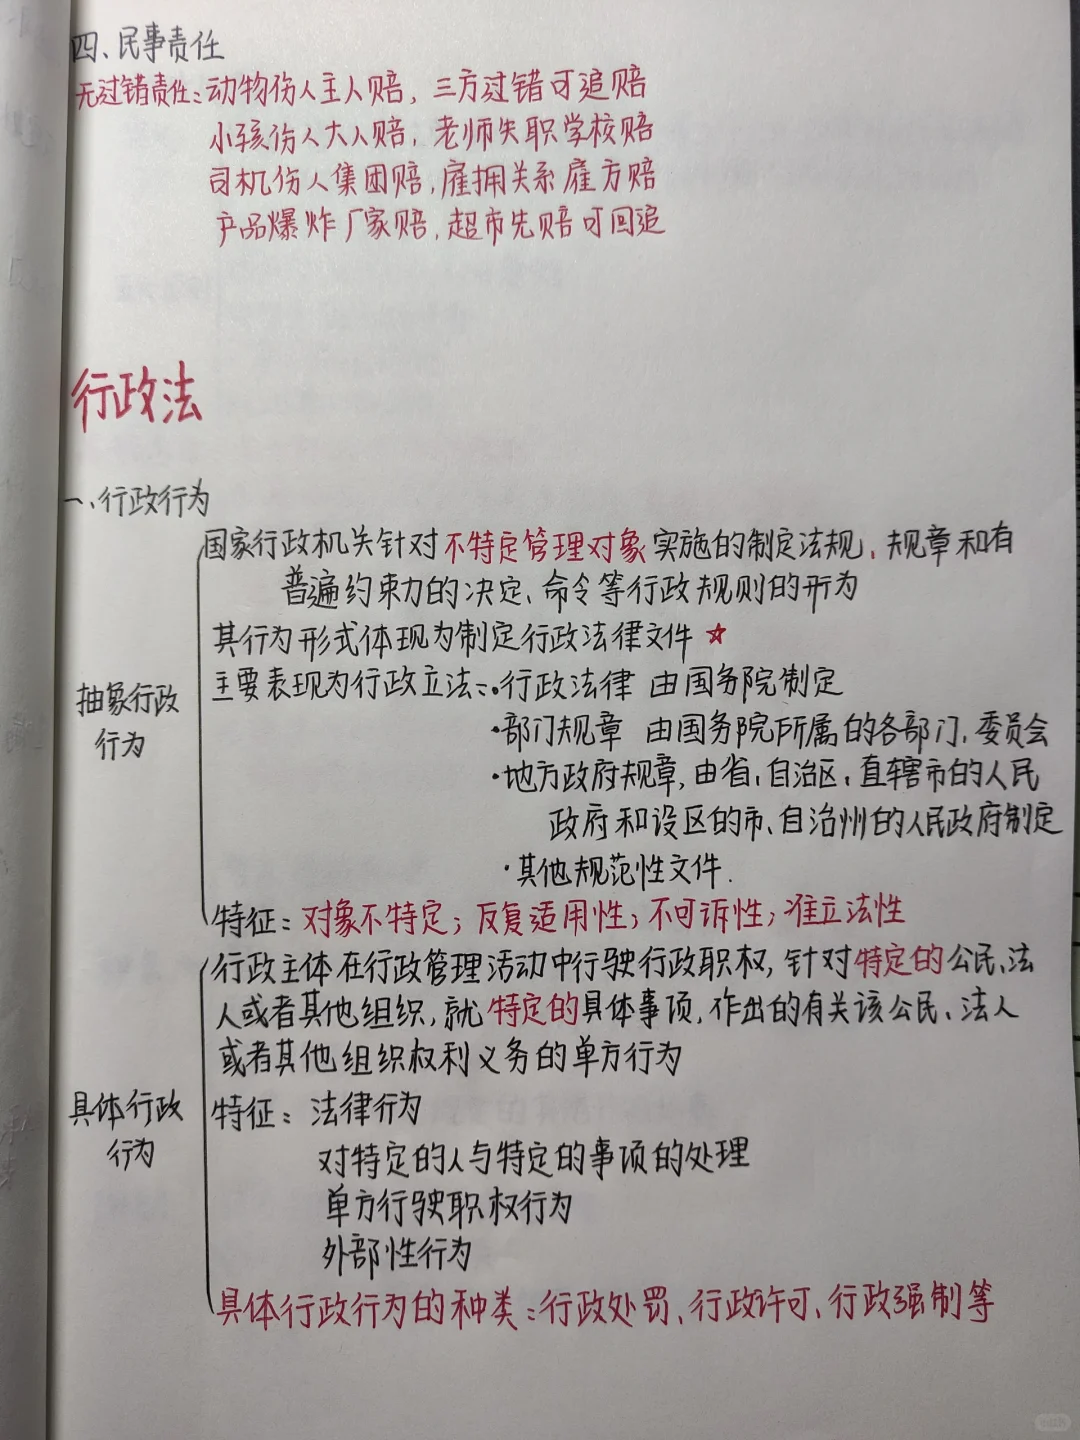 四、民事责任
无过错责任：动物伤人主人赔，三方过错可追赔
小孩伤人大人赔，老师失职学校赔
司机伤人集团赔，雇拥关系雇方赔
产品爆炸厂家赔，超市先赔可回追
行政法
一、行政行为
国家行政机关针对不特定管理对象实施的制定法规、规章和有
普遍约束力的决定、命令等行政规则的行为
其行为形式体现为制定行政法律文件 ☆
主要表现为行政立法：·行政法律 由国务院制定
抽象行政
行为
·部门规章 由国务院所属的各部门、委员会
·地方政府规章，由省、自治区、直辖市的人民
政府和设区的市、自治州的人民政府制定
·其他规范性文件.
特征：对象不特定；反复适用性；不可诉性；准立法性
行政主体在行政管理活动中行驶行政职权，针对特定的公民、法
人或者其他组织，就特定的具体事项，作出的有关该公民、法人
或者其他组织权利义务的单方行为
具体行政
行为
特征：法律行为
对特定的人与特定的事项的处理
单方行驶职权行为
外部性行为
具体行政行为的种类：行政处罚、行政许可、行政强制等